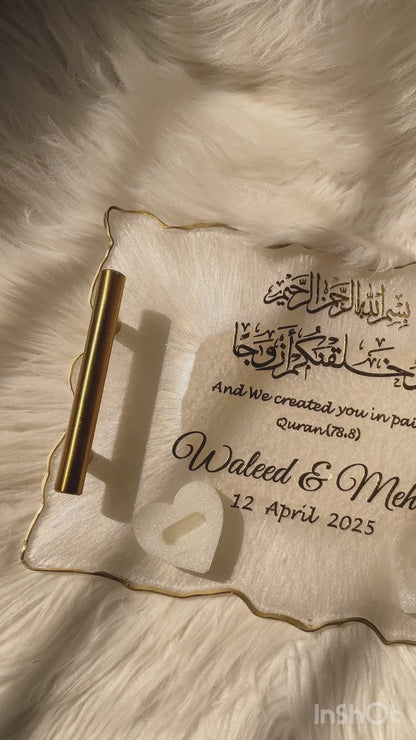 بسم الله الرحمن الرحيم
خلقنكم أزوجا
And We created you in
Quran(78:8)
Waleed &
12 April 2025
InShOt